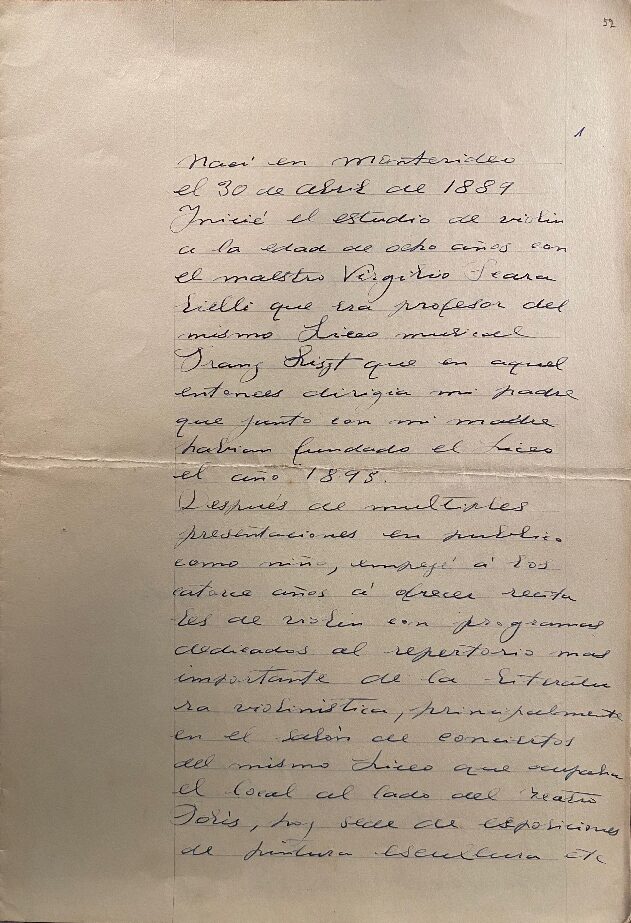 52
1
Nací en Montevideo
el 30 de abril de 1889
Inicié el estudio de violín
a la edad de ocho años con
el maestro Virgilio Scara
belli que era profesor del
mismo Liceo musical
Franz Liszt que en aquel
entonces dirigia mi padre
que junto con mi madre
habian fundado el Liceo
el año 1895.
Después de multiples
presentaciones en publico
como niño, empezé á los
catorce años á ofrecer recita
les de violin con programas
dedicados al repertorio mas
importante de la literatu
ra violinistica, principalmente
en el salón de conciertos
del mismo Liceo que ocupaba
el local al lado del Teatro
Solis, hoy sede de esposiciones
de pintura escultura etc